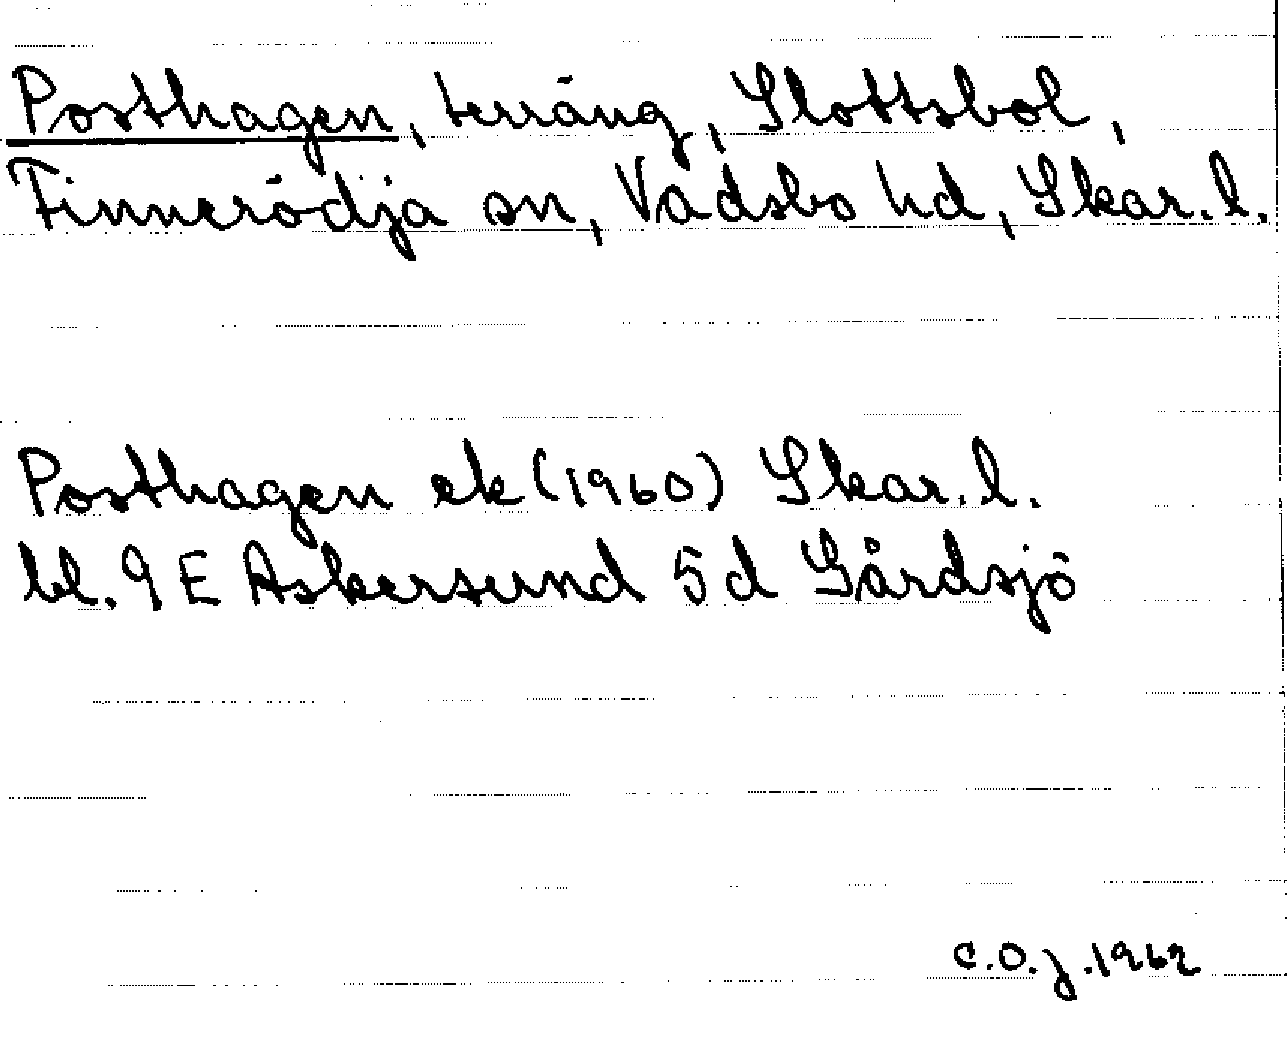 Posthagen, terräng, Slottsbol,
Finnerödja sn, Vadsbo hd, Skar. l.
Posthagen ek (1960) Skar. l.
bl. 9 E Askersund 5 d Gårdsjö
C.O.J. 1962